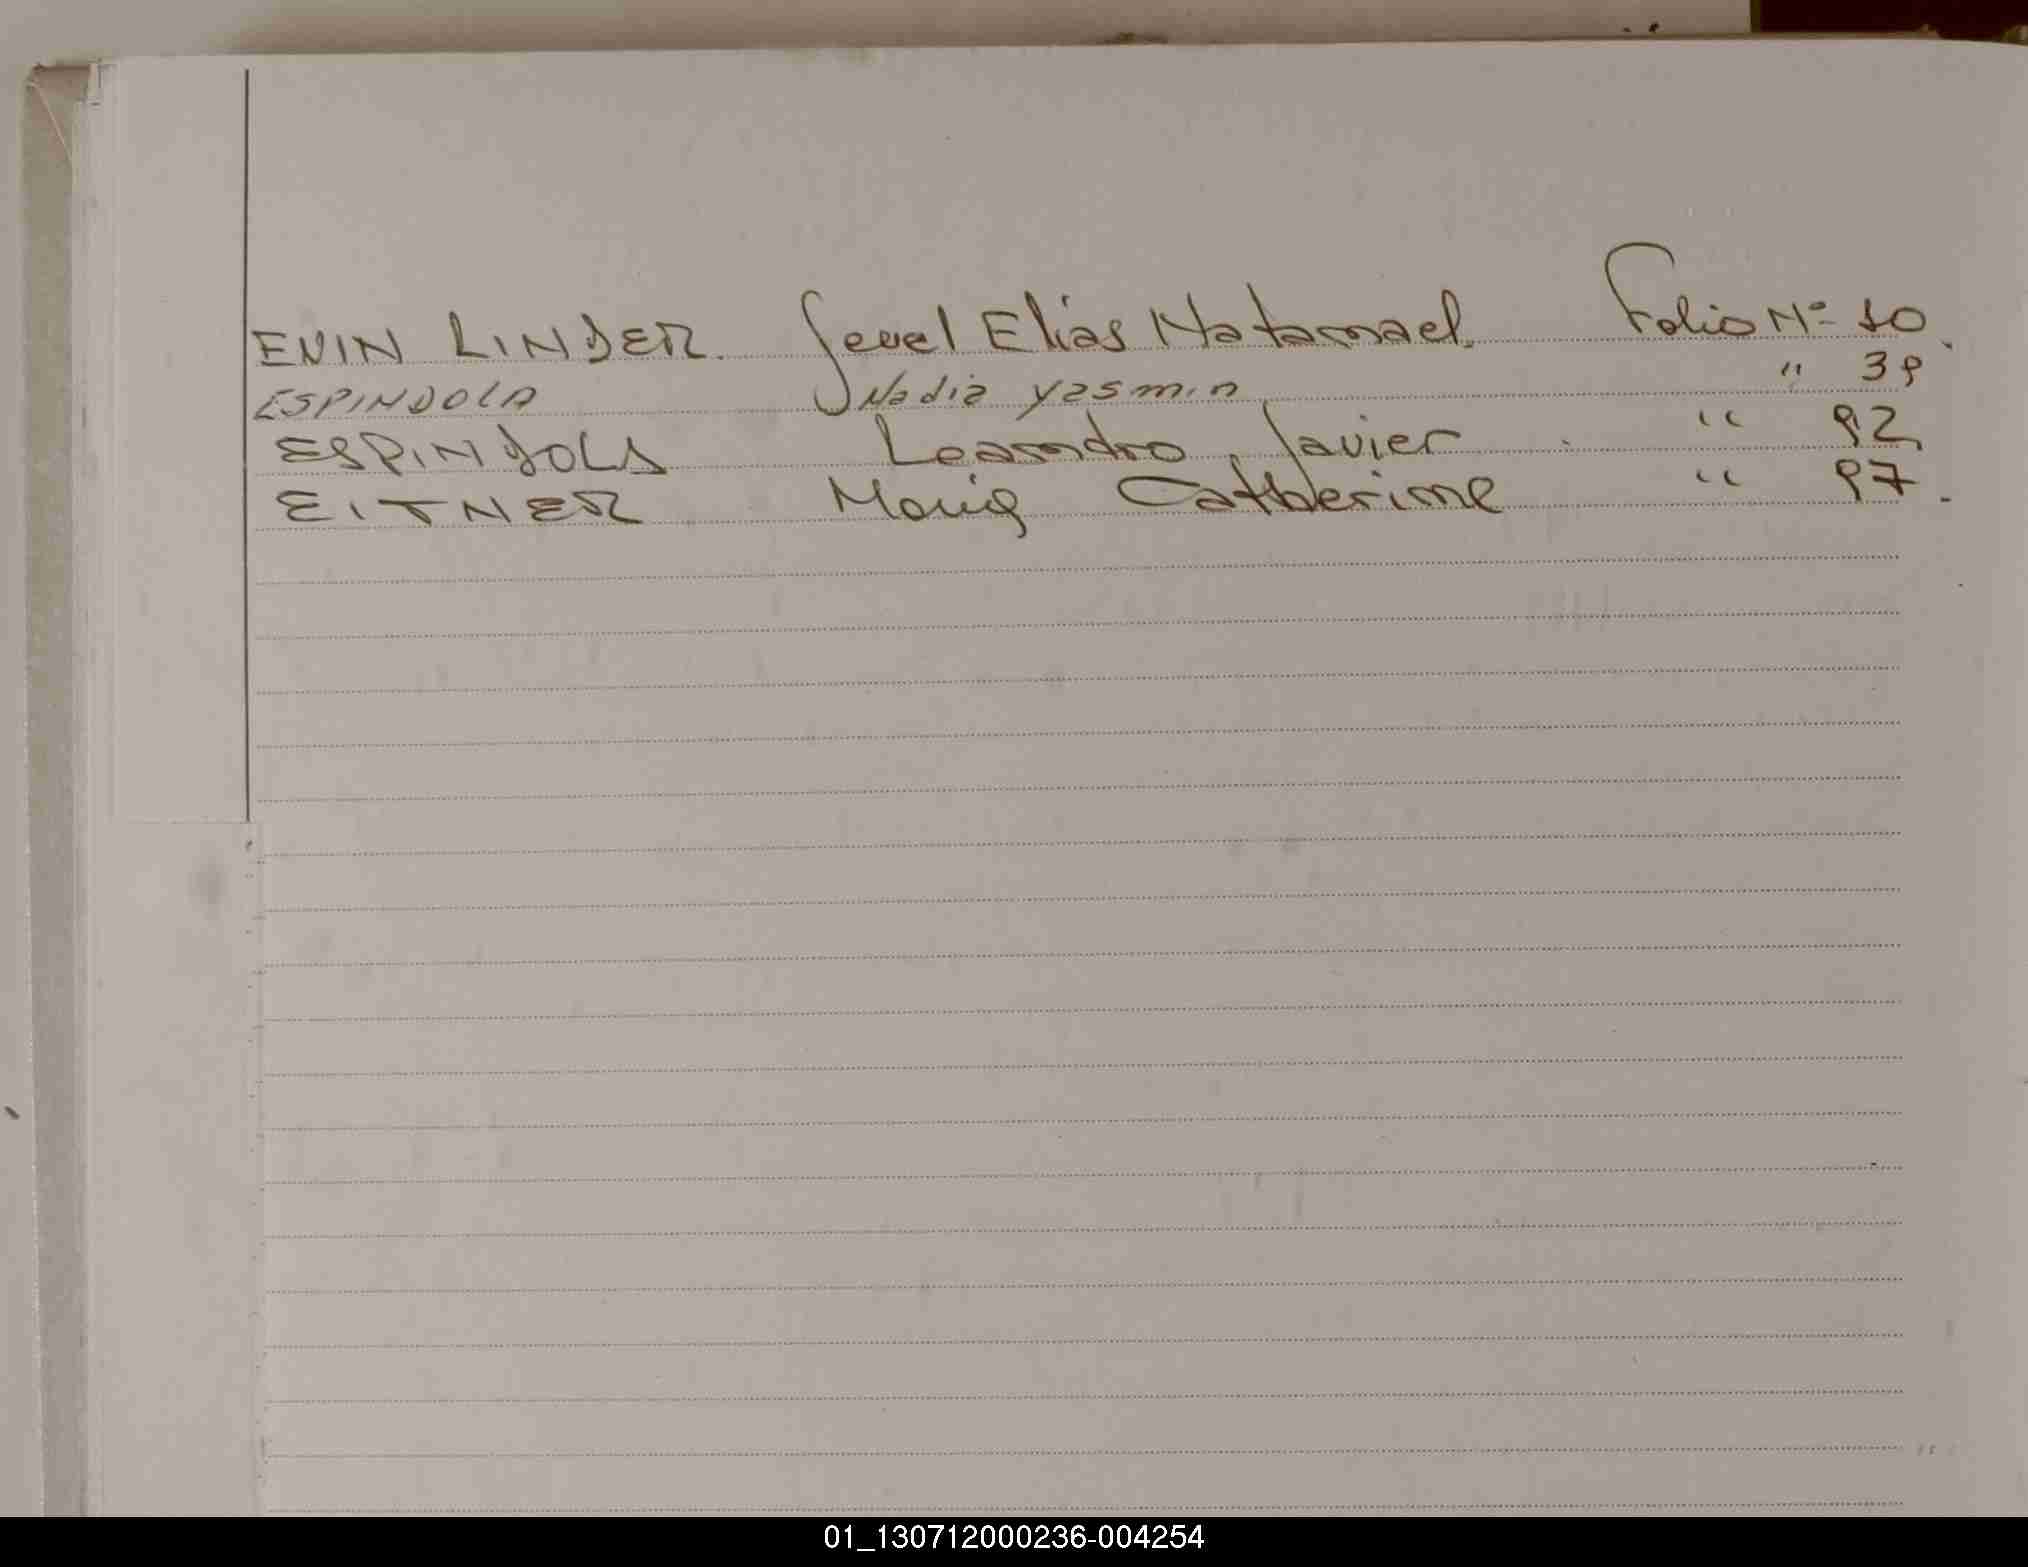 EVIN LINDER. Jevel Elias Natanael. Folio Nº 10.
ESPINDOLA Nadia Yasmin " 39
ESPINDOLA Leandro Javier " 92
EITNER Maria Catherine " 97.
01_130712000236-004254